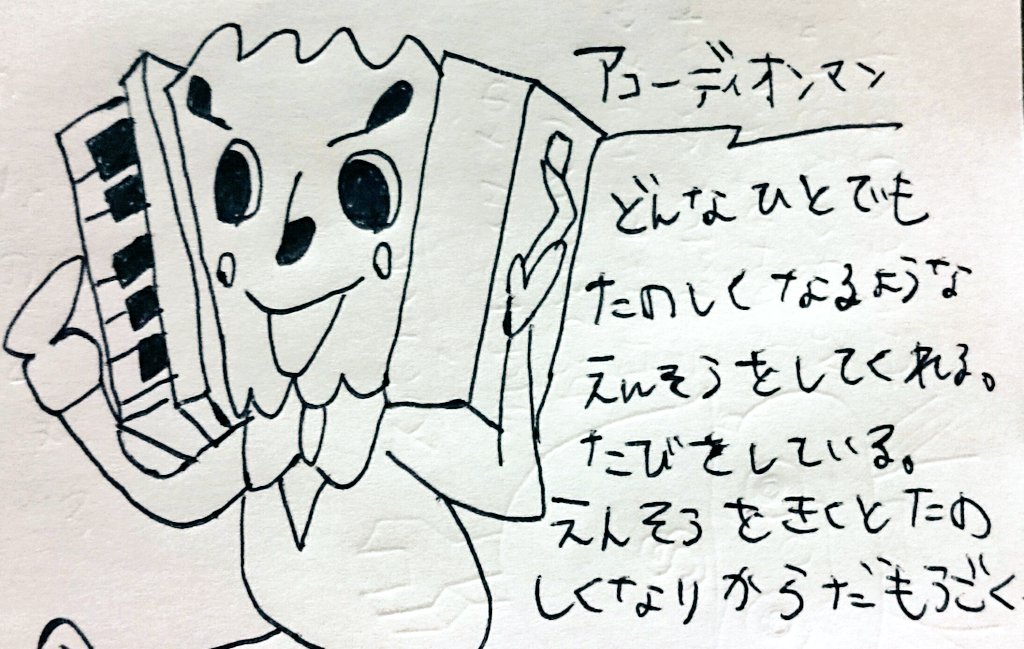 アコーディオンマン
どんなひとでも
たのしくなるような
えんそうをしてくれる。
たびをしている。
えんそうをきくとたの
しくなりからだもうごく